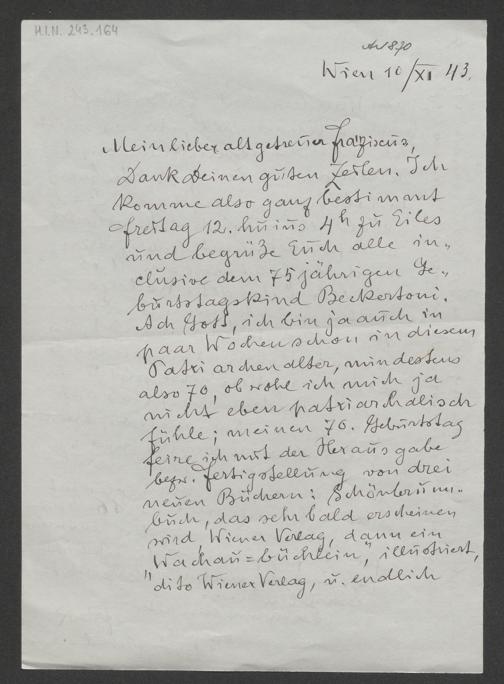 H.I.N. 243.164
Wien 10/XI 43.
Mein lieber altgetreuer Franziscus,
Dank Deinen guten Zeilen. Ich
komme also ganz bestimmt
freitag 12. huius 4h zu Eiles
und begrüße Euch alle in„
clusive dem 75jährigen Ge„
burtstagskind Beckertoni.
Ach Gott, ich bin ja auch in
paar Wochen schon in diesem
Patriarchenalter, mindestens
also 70, obwohl ich mich ja
nicht eben patriarchalisch
fühle; meinen 70. Geburtstag
feire ich mit der Herausgabe
bezw. Fertigstellung von drei
neuen Büchern: Schönbrunn„
buch, das sehr bald erscheinen
wird Wiener Verlag, dann ein
"Wachau=büchlein", illustriert,
dito Wiener Verlag, u. endlich